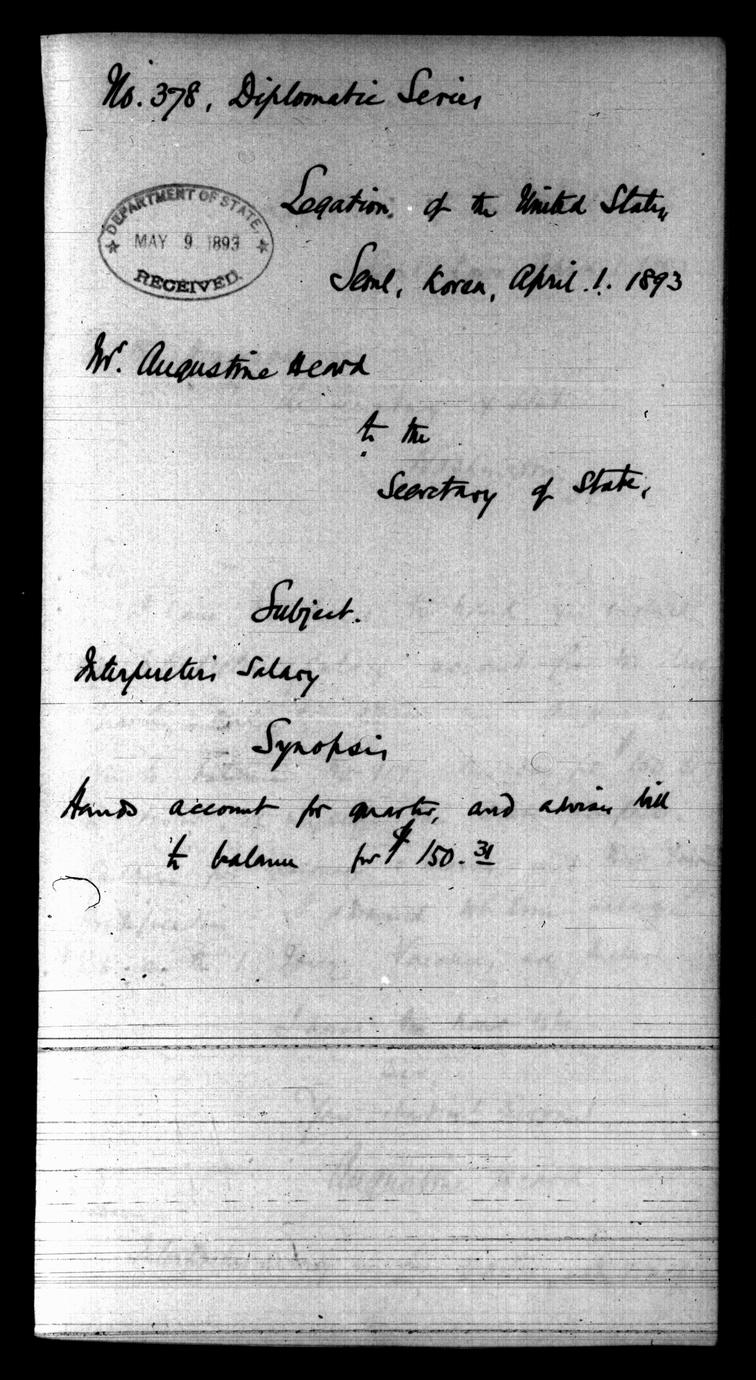 No. 378, Diplomatic Series
Legation of the United States,
DEPARTMENT OF STATE,
MAY 9 1893
RECEIVED.
Seoul, Korea, April 1. 1893
Mr. Augustine Heard
to the
Secretary of State,
Subject.
Interpreter's Salary
Synopsis
Hands account for quarter, and advises bill
to balance for $150.31